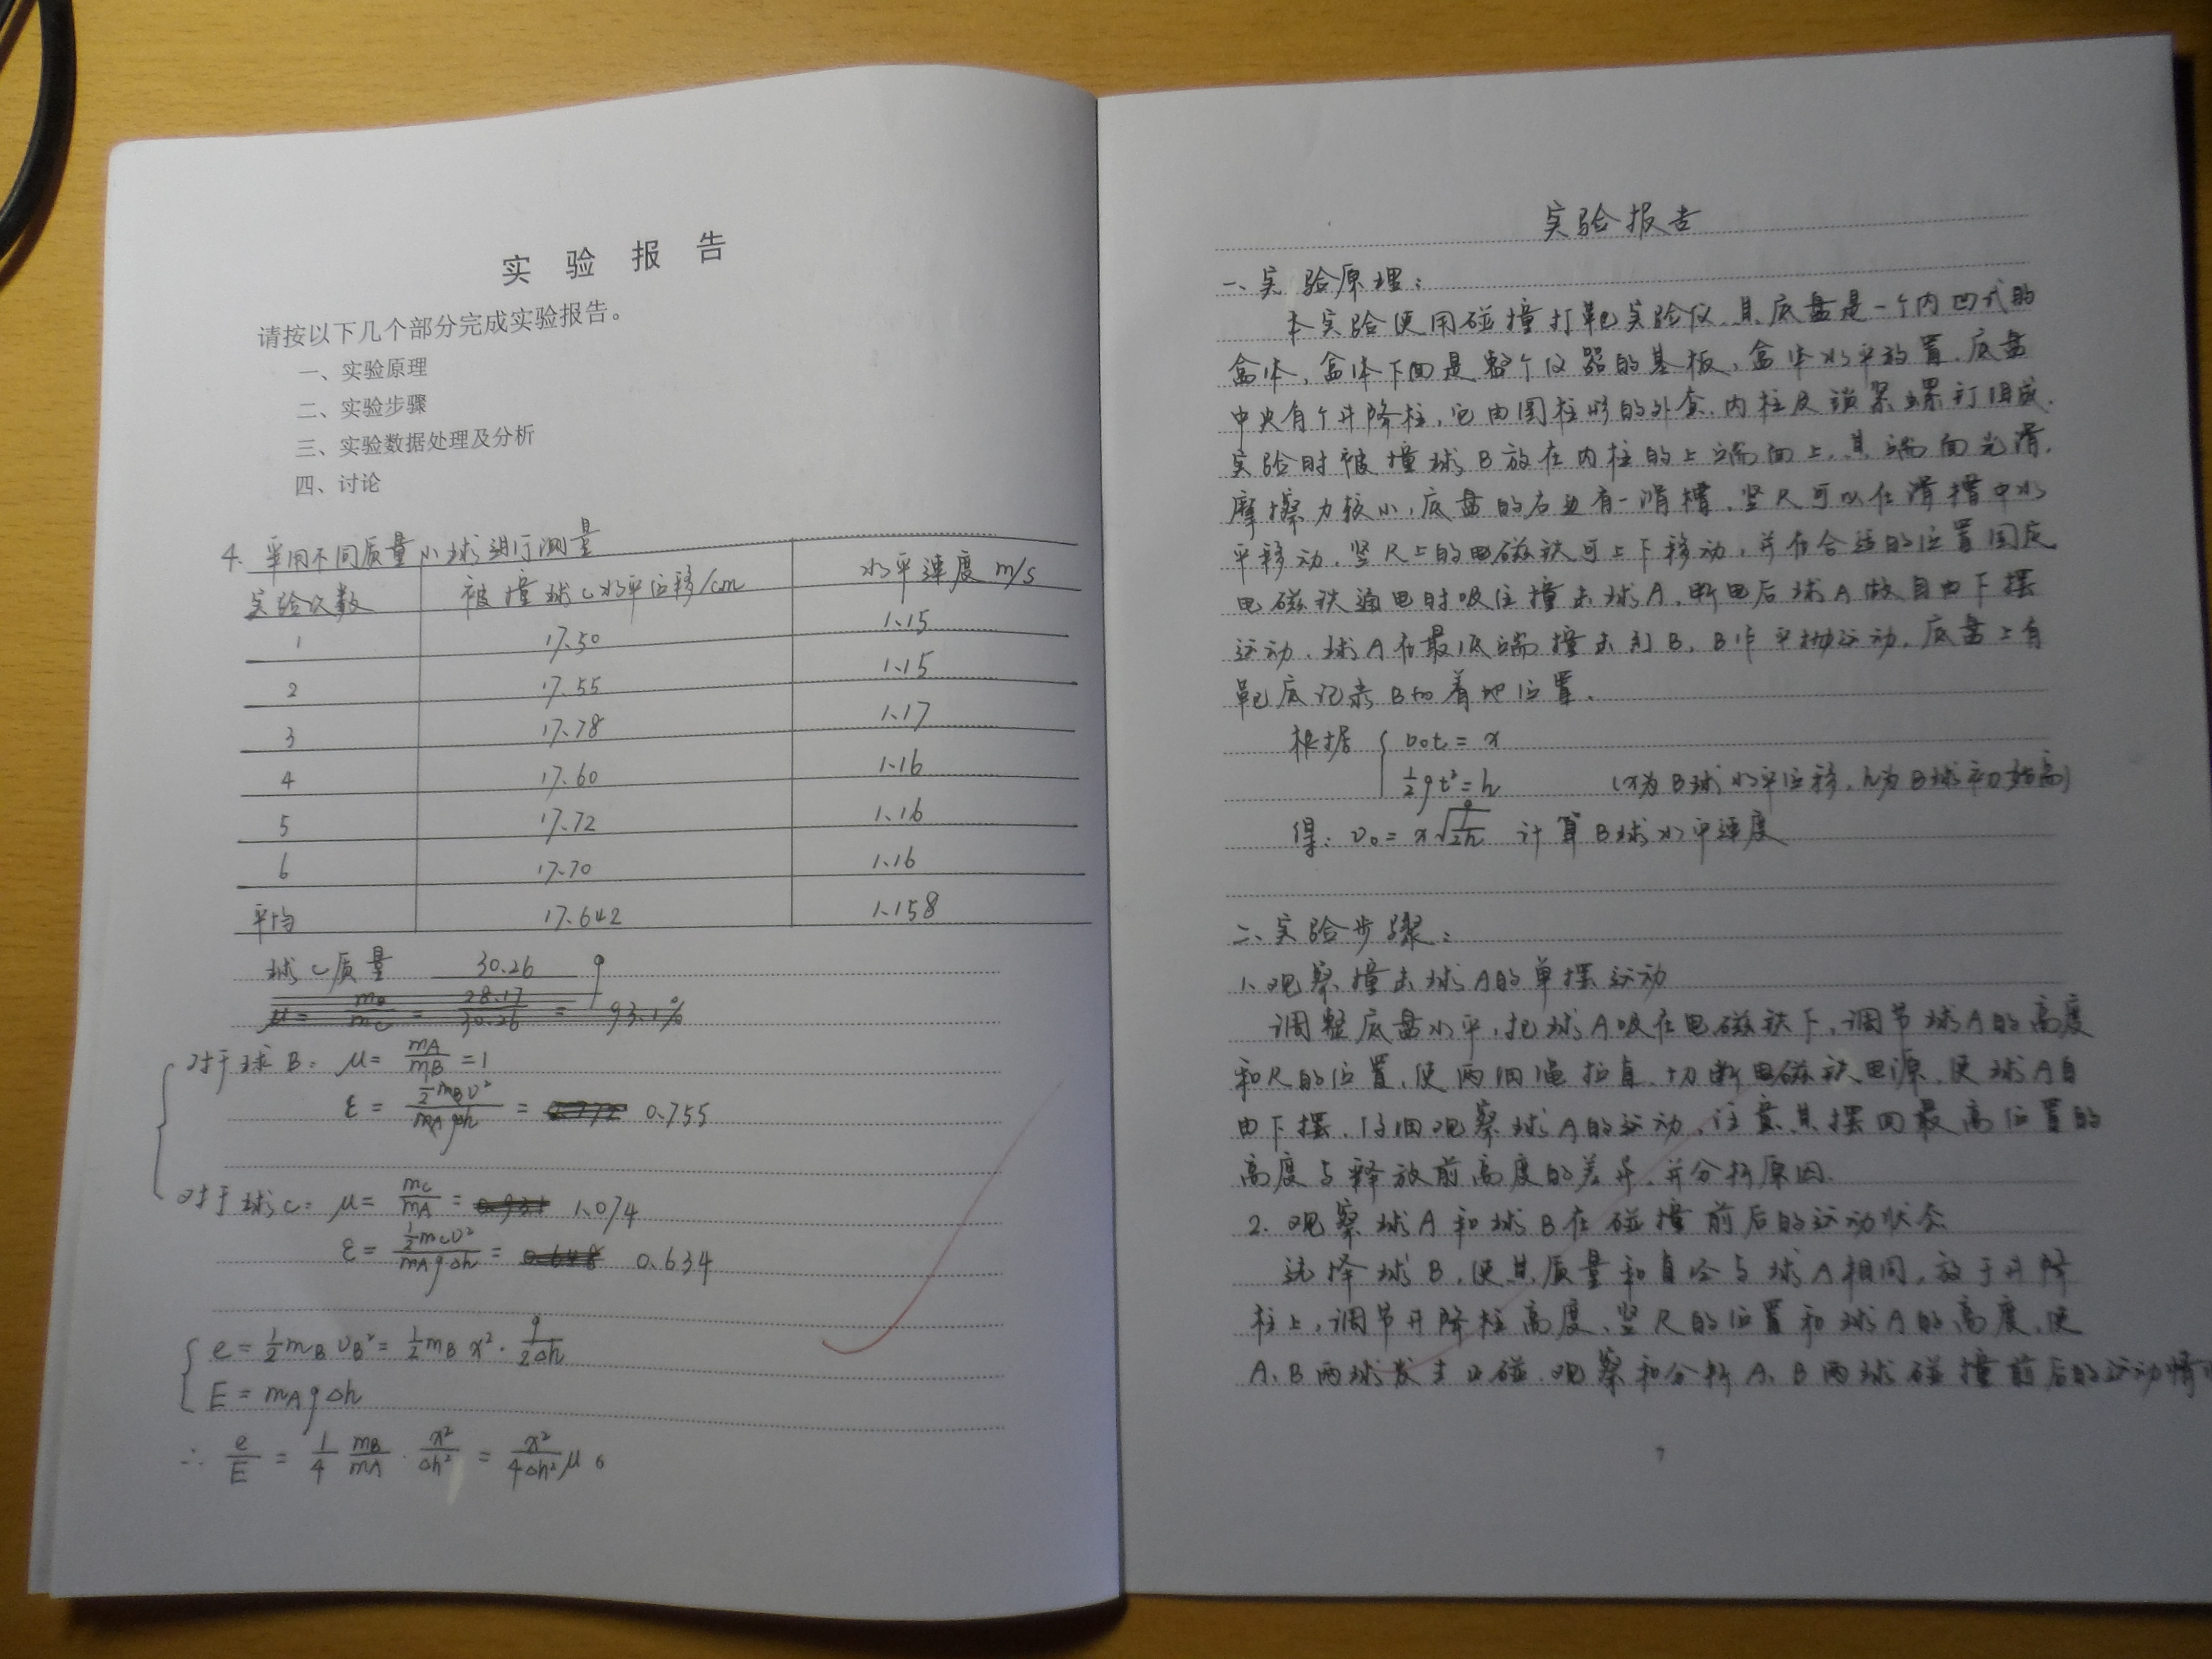 实验报告
请按以下几个部分完成实验报告。
一、实验原理
二、实验步骤
三、实验数据处理及分析
四、讨论
4. 采用不同质量小球进行测量
实验次数 被撞球C水平位移/cm 水平速度 m/s
1 17.50 1.15
2 17.55 1.15
3 17.78 1.17
4 17.60 1.16
5 17.72 1.16
6 17.70 1.16
平均 17.642 1.158
球C质量 30.26 g
μ= mB/mC = 28.17/30.26 = 93.1%
对于球B: μ= mA/mB =1
ε= ½mBv²/mAgΔh = 0.755
对于球C: μ= mC/mA = 1.074
ε= ½mCv²/mAgΔh = 0.634
e=½mBvB²=½mB x²·g/2Δh
E=mAgΔh
∴ e/E = 1/4 mB/mA · x²/Δh² = x²/4Δh² μ。
实验报告
一、实验原理:
本实验使用碰撞打靶实验仪,其底盘是一个内凹式的
盒体,盒体下面是整个仪器的基板,盒体水平放置.底盘
中央有个升降柱,它由圆柱形的外套、内柱及锁紧螺钉组成.
实验时被撞球B放在内柱的上端面上,其端面光滑,
摩擦力较小,底盘的右边有一滑槽,竖尺可以在滑槽中水
平移动,竖尺上的电磁铁可上下移动,并在合适的位置固定
电磁铁通电时吸住撞击球A,断电后球A做自由下摆
运动,球A在最低端撞击到B,B作平抛运动,底盘上有
靶底记录B的着地位置.
根据 v₀t=x
½gt²=h (x为B球水平位移,h为B球初始高)
得: v₀=x√g/2h 计算B球水平速度
二、实验步骤:
1. 观察撞击球A的单摆运动
调整底盘水平,把球A吸在电磁铁下,调节球A的高度
和尺的位置,使两细绳拉直,切断电磁铁电源,使球A自
由下摆,仔细观察球A的运动,注意其摆回最高位置的
高度与释放前高度的差异,并分析原因.
2. 观察球A和球B在碰撞前后的运动状态
选择球B,使其质量和直径与球A相同,放于升降
柱上,调节升降柱高度、竖尺的位置和球A的高度,使
A、B两球发生正碰,观察和分析A、B两球碰撞前后的运动情
7